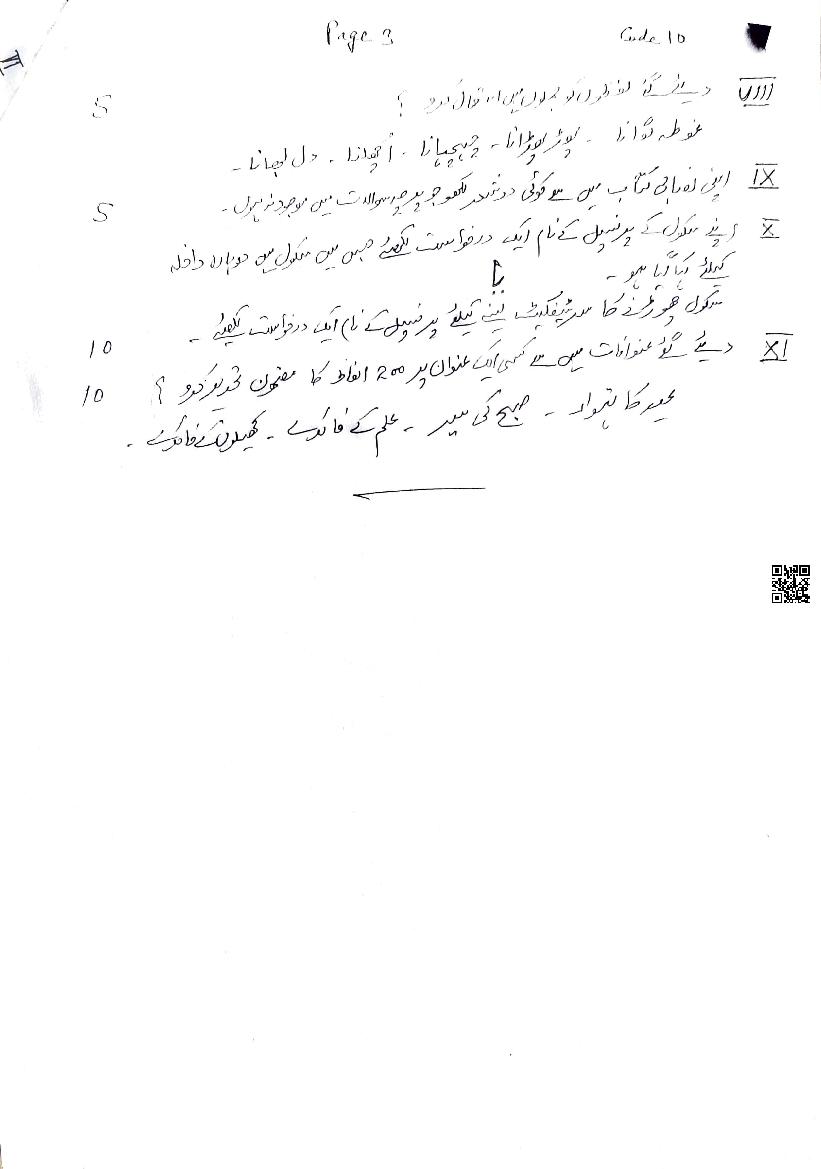 Page 3 Code 10
VIII دیئے گئے لفظوں کو جملوں میں استعمال کرو ؟ 5
غوطہ لگانا ۔ پھڑپھڑانا ۔ چہچہانا ۔ اُچھلنا ۔ دل لبھانا ۔
IX اپنی نصابی کتاب میں سے کوئی دو شعر لکھو جو پرچہ سوالات میں موجود نہ ہوں ۔ 5
X اپنے سکول کے پرنسپل کے نام ایک درخواست لکھئے جس میں سکول میں دوبارہ داخلہ
کیلئے کہا گیا ہو ۔
یا
سکول چھوڑنے کا سرٹیفکیٹ لینے کیلئے پرنسپل کے نام ایک درخواست لکھئے ۔ 10
XI دیئے گئے عنوانات میں سے کسی ایک عنوان پر 200 الفاظ کا مضمون تحریر کرو ؟ 10
عید کا تہوار ۔ صبح کی سیر ۔ علم کے فائدے ۔ کھیلوں کے فائدے ۔